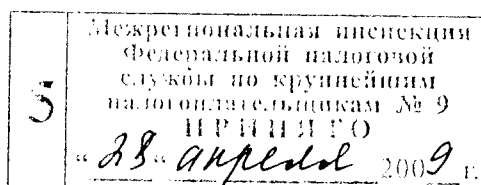 5
Межрегиональная инспекция
Федеральной налоговой
службы по крупнейшим
налогоплательщикам № 9
ПРИНЯТО
"28" апреля 2009 г.